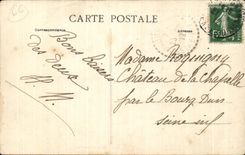 CARTE POSTALE
Correspondance
Bons baisers
des deux
H. M.
Madame
Château de la Chapelle
par le Bourg Dun
Seine inf